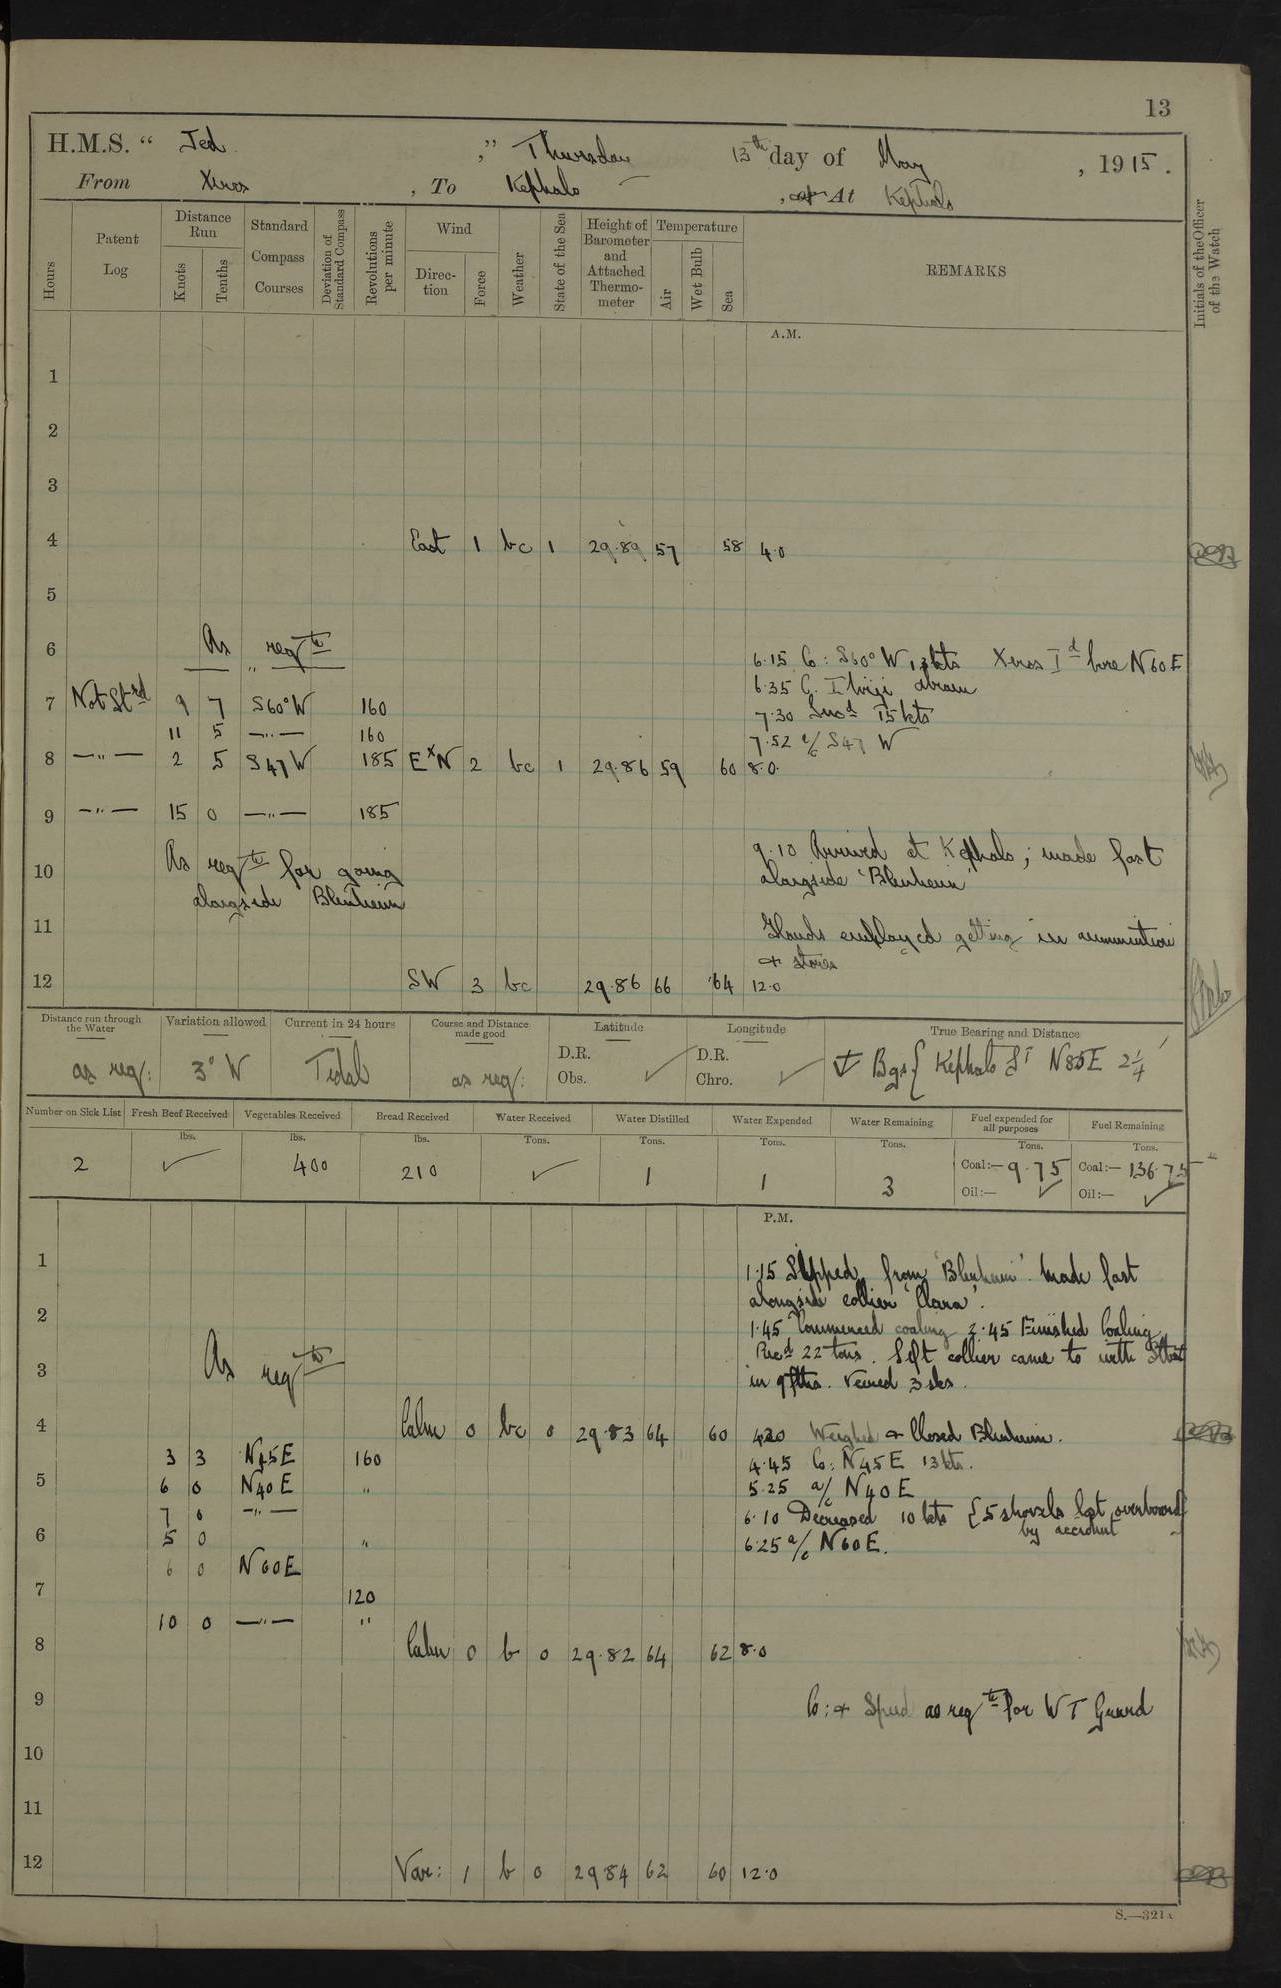 13
H.M.S. " Jed ," Thursday 13th day of May , 1915.
From Xeros , To Kephalo , or At Kephalo
Hours
Patent Log
Distance Run
Knots
Tenths
Standard Compass Courses
Deviation of Standard Compass
Revolutions per minute
Wind
Direction
Force
Weather
State of the Sea
Height of Barometer and Attached Thermometer
Temperature
Air
Wet Bulb
Sea
REMARKS
Initials of the Officer of the Watch
A.M.
1
2
3
4 East 1 bc 1 29.89 57 58 4.0
5
6 As reqte
6.15 Co: S60°W 13kts Xeros Id bore N60E
6.35 C. Ibriji abeam
7 Not Strd 9 7 S60°W 160
7.30 Incd 15kts
11 5 —"— 160
7.52 a/c S47 W
8 —"— 2 5 S47W 185 ExN 2 bc 1 29.86 59 60 8.0.
9 —"— 15 0 —"— 185
9.10 Arrived at Kephalo; made fast
10 As reqte for going
alongside 'Blenheim'
alongside Blenheim
11 Hands employed getting in ammunition
& stores
12 SW 3 bc 29.86 66 64 12.0
Distance run through the Water
Variation allowed
Current in 24 hours
Course and Distance made good
Latitude
Longitude
True Bearing and Distance
as req: 3° W Tidal as req:
D.R.
Obs. ✓
D.R.
Chro. ✓
Bgs { Kephalo Lt N85E 2¼'
Number on Sick List
Fresh Beef Received
Vegetables Received
Bread Received
Water Received
Water Distilled
Water Expended
Water Remaining
Fuel expended for all purposes
Fuel Remaining
lbs. lbs. lbs. Tons. Tons. Tons. Tons. Tons. Tons.
2 ✓ 400 210 ✓ 1 1 3 Coal:— 9.75 Coal:— 136.75
Oil:— ✓ Oil:— ✓
P.M.
1 1.15 Slipped from 'Blenheim'. Made fast
alongside collier 'Clara'.
2 1.45 Commenced coaling 2.45 Finished Coaling
Recd 22 tons. Left collier came to with
3 As reqte
in 9 fths. Veered 3 sks.
4 Calm 0 bc 0 29.83 64 60 4.20 Weighed & Closed Blenheim.
3 3 N45E 160 4.45 Co: N45E 13kts.
5 6 0 N40E " 5.25 a/c N40E
7 0 —"— 6.10 Decreased 10kts {5 shovels lost overboard
by accident
6 5 0 " 6.25 a/c N60E.
6 0 N60E
7 120
10 0 —"— "
8 Calm 0 b 0 29.82 64 62 8.0
9 Co: & Speed as reqte for WT Guard
10
11
12 Var: 1 b 0 29 84 62 60 12.0
S.—321A